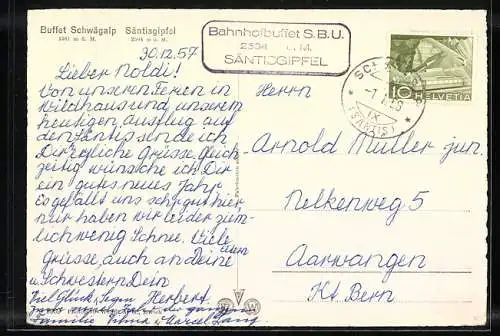 Buffet Schwägalp Säntisgipfel
Bahnhofbuffet S.B.U.
SÄNTISGIPFEL
10 HELVETIA
30.12.57
Lieber Noldi!
Von unseren Ferien in
Wildhaus und unserem
heutigen Ausflug auf
den Säntis sende ich
Dir herzliche Grüsse. Gleich-
zeitig wünsche ich Dir
ein gutes neues Jahr.
Es gefällt uns sehr gut hier
nur haben wir leider ziem-
lich wenig Schnee. Viele
Grüsse auch an Deine Eltern
u. Schwestern Dein
Herbert
Viel Glück u. Segen
Familie
Herrn
Arnold Müller jun.
Nelkenweg 5
Aarwangen
Kt. Bern